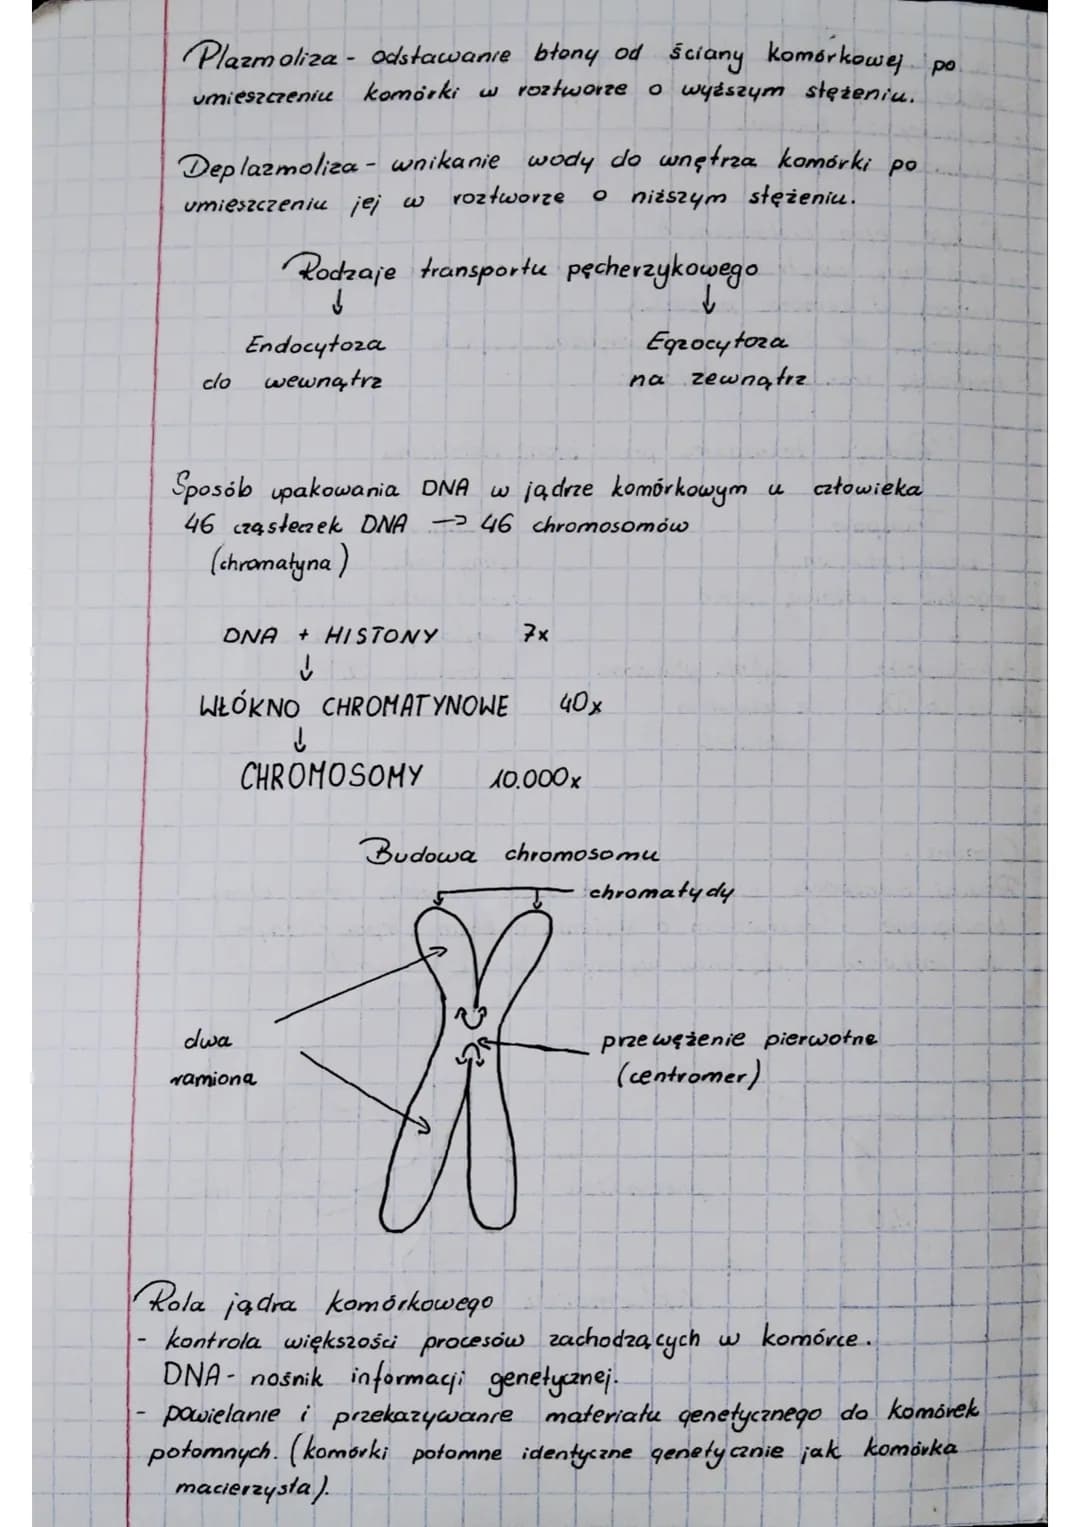 Plazmoliza - odstawanie błony od ściany komórkowej po
umieszczeniu komórki w roztworze o wyższym stężeniu.
Deplazmoliza - wnikanie wody do wnętrza komórki po
umieszczeniu jej w roztworze o niższym stężeniu.
Rodzaje transportu pęcherzykowego
↓ ↓
Endocytoza Egzocytoza
do wewnątrz na zewnątrz
Sposób upakowania DNA w jądrze komórkowym u człowieka
46 cząsteczek DNA → 46 chromosomów
(chromatyna)
DNA + HISTONY 7x
↓
WŁÓKNO CHROMATYNOWE 40x
↓
CHROMOSOMY 10.000x
Budowa chromosomu
chromatydy
dwa
ramiona
przewężenie pierwotne
(centromer)
Rola jądra komórkowego
- kontrola większości procesów zachodzących w komórce.
DNA - nośnik informacji genetycznej.
- powielanie i przekazywanie materiału genetycznego do komórek
potomnych. (komórki potomne identyczne genetycznie jak komórka
macierzysta).